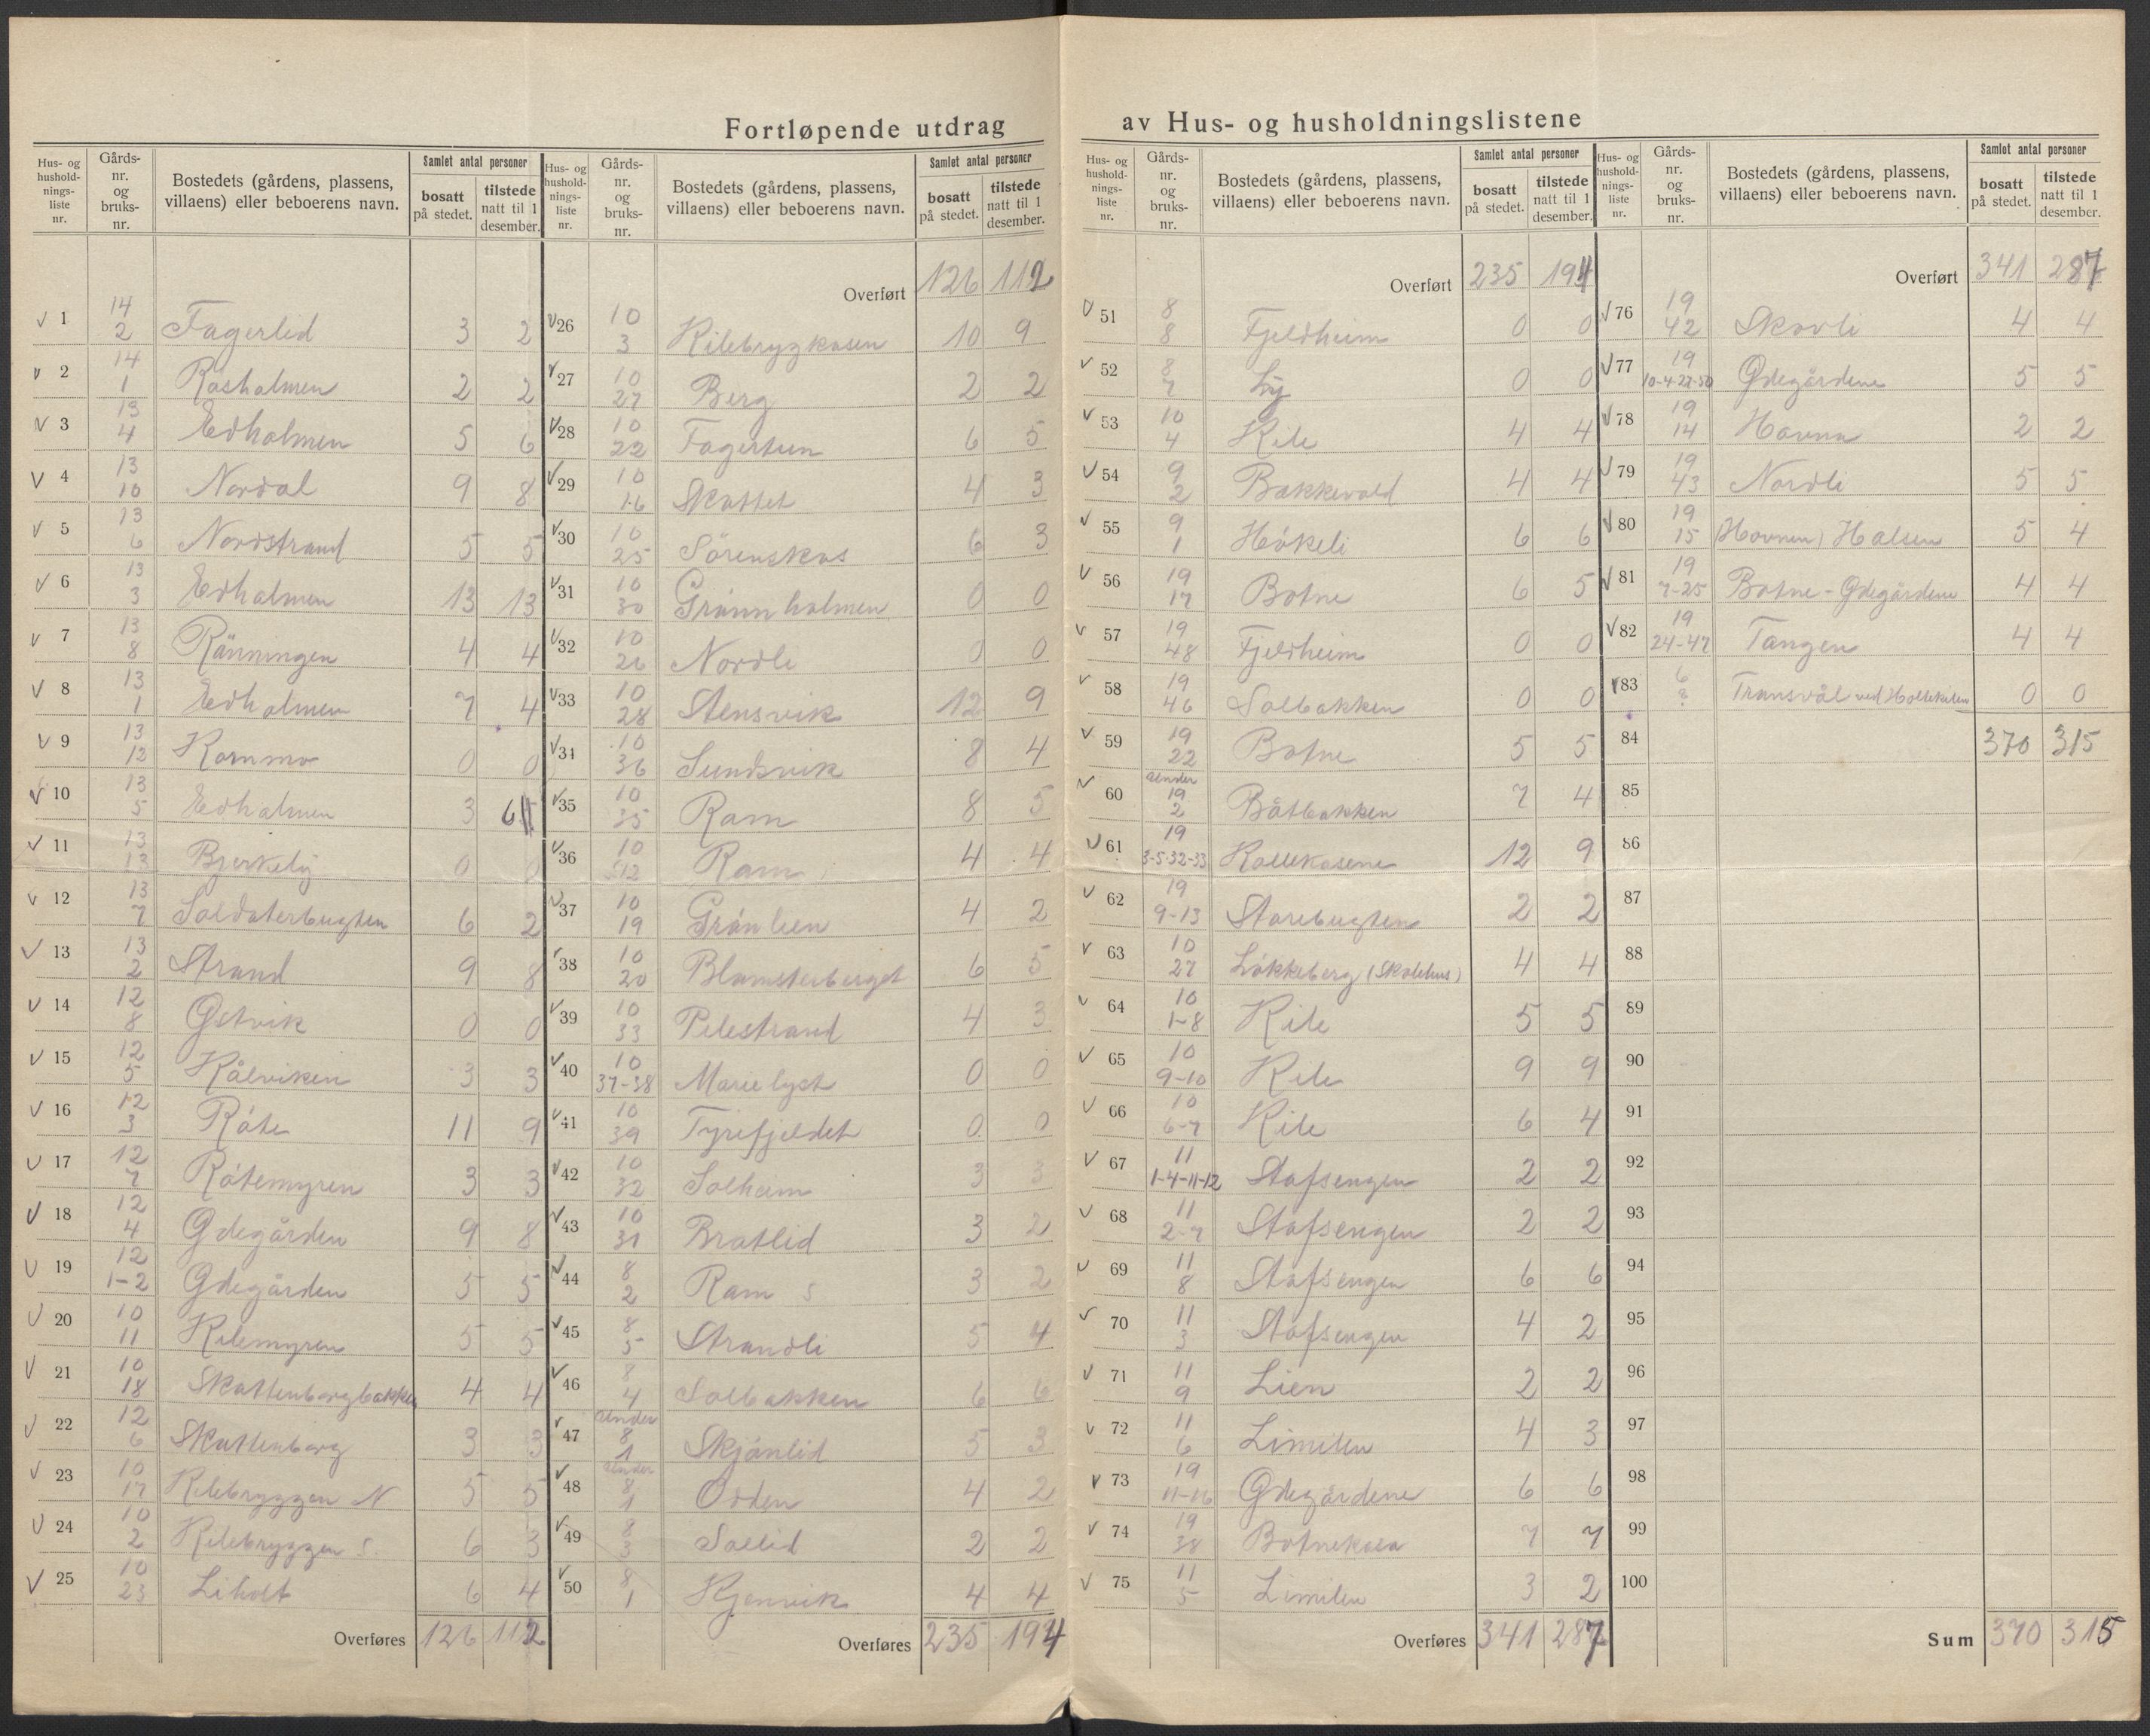 Fortløpende utdrag av Hus- og husholdningslistene
Hus- og hushold-nings-liste nr. | Gårds-nr. og bruks-nr. | Bostedets (gårdens, plassens, villaens) eller beboerens navn. | Samlet antal personer: bosatt på stedet. | tilstede natt til 1 desember.
1 | 14 2 | Fagerlid | 3 | 2
2 | 14 1 | Rasholmen | 2 | 2
3 | 13 4 | Edholmen | 5 | 6
4 | 13 10 | Nordal | 9 | 8
5 | 13 6 | Nordstrand | 5 | 5
6 | 13 3 | Edholmen | 13 | 13
7 | 13 8 | Rönningen | 4 | 4
8 | 13 1 | Edholmen | 7 | 4
9 | 13 12 | Kornmo | 0 | 0
10 | 13 5 | Edholmen | 3
11 | 13 13 | Bjerkely | 0 | 0
12 | 13 7 | Soldaterbugten | 6 | 2
13 | 13 2 | Strand | 9 | 8
14 | 12 8 | Østvik | 0 | 0
15 | 12 5 | Kålviken | 3 | 3
16 | 12 3 | Råte | 11 | 9
17 | 12 7 | Råtemyren | 3 | 3
18 | 12 4 | Ødegården | 9 | 8
19 | 12 1-2 | Ødegården | 5 | 5
20 | 10 11 | Kilemyren | 5 | 5
21 | 10 18 | Skottenborgbakken | 4 | 4
22 | 12 6 | Skottenborg | 3 | 3
23 | 10 17 | Kilebryggen N | 5 | 5
24 | 10 2 | Kilebryggen S. | 6 | 3
25 | 10 23 | Liholt | 6 | 4
Overføres | 126 | 112
Hus- og hushold-nings-liste nr. | Gårds-nr. og bruks-nr. | Bostedets (gårdens, plassens, villaens) eller beboerens navn. | Samlet antal personer: bosatt på stedet. | tilstede natt til 1 desember.
Overført | 126 | 112
26 | 10 3 | Kilebrygkasen | 10 | 9
27 | 10 27 | Berg | 2 | 2
28 | 10 22 | Fagertun | 6 | 5
29 | 10 16 | Skottet | 4 | 3
30 | 10 25 | Sörenskås | 6 | 3
31 | 10 30 | Grönnholmen | 0 | 0
32 | 10 26 | Nordli | 0 | 0
33 | 10 28 | Stensvik | 12 | 9
34 | 10 36 | Sundsvik | 8 | 4
35 | 10 35 | Ram | 8 | 5
36 | 10 12 | Ram | 4 | 4
37 | 10 19 | Grönlien | 4 | 2
38 | 10 20 | Blomsterberget | 6 | 5
39 | 10 33 | Pilestrand | 4 | 3
40 | 10 37-38 | Marielyst | 0 | 0
41 | 10 39 | Tyrefjeldet | 0 | 0
42 | 10 32 | Solheim | 3 | 3
43 | 10 31 | Bratlid | 3 | 2
44 | 8 2 | Ram S | 3 | 2
45 | 8 5 | Strandli | 5 | 4
46 | 8 4 | Solbakken | 6 | 6
47 | under 8 1 | Skjönlid | 5 | 3
48 | under 8 1 | Odden | 4 | 2
49 | 8 3 | Sollid | 2 | 2
50 | 8 1 | Kjenvik | 4 | 4
Overføres | 235 | 194
Hus- og hushold-nings-liste nr. | Gårds-nr. og bruks-nr. | Bostedets (gårdens, plassens, villaens) eller beboerens navn. | Samlet antal personer: bosatt på stedet. | tilstede natt til 1 desember.
Overført | 235 | 194
51 | 8 8 | Fjeldheim | 0 | 0
52 | 8 7 | Ly | 0 | 0
53 | 10 4 | Kile | 4 | 4
54 | 9 2 | Bakkevold | 4 | 4
55 | 9 1 | Håkeli | 6 | 6
56 | 19 17 | Botne | 6 | 5
57 | 19 48 | Fjeldheim | 0 | 0
58 | 19 46 | Solbakken | 0 | 0
59 | 19 22 | Botne | 5 | 5
60 | under 19 2 | Båtbakken | 7 | 4
61 | 19 3-5-32-33 | Kollekasene | 12 | 9
62 | 19 9-13 | Storebugten | 2 | 2
63 | 10 27 | Løkkeberg (Skolehus) | 4 | 4
64 | 10 1-8 | Kile | 5 | 5
65 | 10 9-10 | Kile | 9 | 9
66 | 10 6-7 | Kile | 6 | 4
67 | 11 1-4-11-12 | Stafsengen | 2 | 2
68 | 11 2-7 | Stafsengen | 2 | 2
69 | 11 8 | Stafsengen | 6 | 6
70 | 11 3 | Stafsengen | 4 | 2
71 | 11 9 | Lien | 2 | 2
72 | 11 6 | Limilen | 4 | 3
73 | 19 11-16 | Ødegårdene | 6 | 6
74 | 19 38 | Botnekasa | 7 | 7
75 | 11 5 | Limilen | 3 | 2
Overføres | 341 | 287
Hus- og hushold-nings-liste nr. | Gårds-nr. og bruks-nr. | Bostedets (gårdens, plassens, villaens) eller beboerens navn. | Samlet antal personer: bosatt på stedet. | tilstede natt til 1 desember.
Overført | 341 | 287
76 | 19 42 | Skovli | 4 | 4
77 | 19 10-4-27-50 | Ødegårdene | 5 | 5
78 | 19 14 | Havna | 2 | 2
79 | 19 43 | Nordli | 5 | 5
80 | 19 15 | (Hovnen) Halsen | 5 | 4
81 | 19 7-25 | Botne-Ødegårdene | 4 | 4
82 | 19 24-47 | Tangen | 4 | 4
83 | 6 ? | Transvål ved Holtekilen | 0 | 0
84 | 370 | 315
85
86
87
88
89
90
91
92
93
94
95
96
97
98
99
100
Sum | 370 | 315